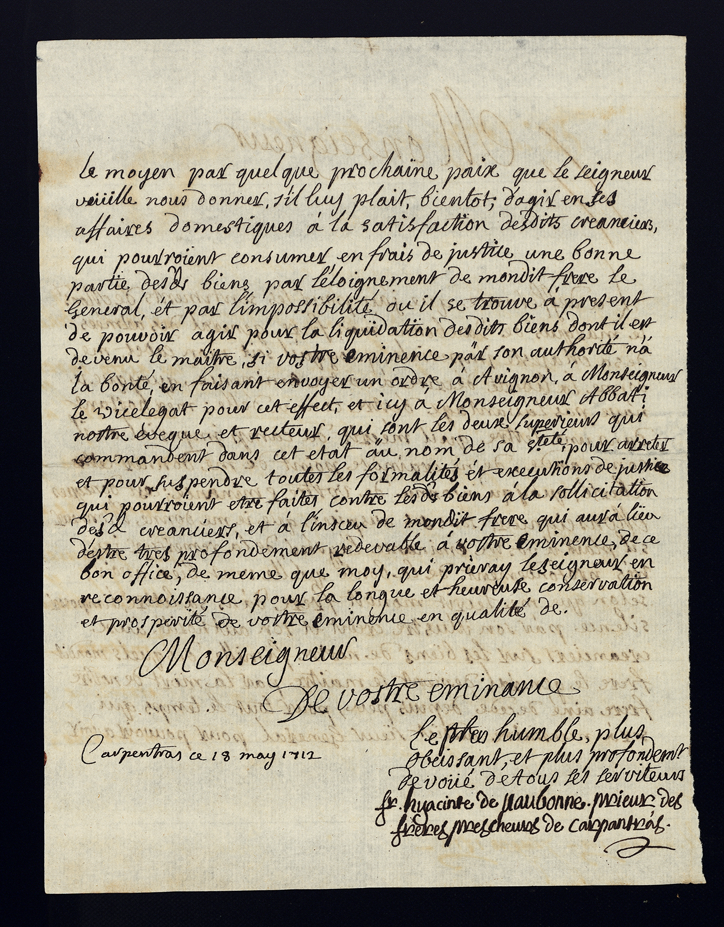 le moyen par quelque prochaine paix que le seigneur
veüille nous donner, s'il luy plait, bientot; d'agir en ses
affaires domestiques á la satisfaction desdits creanciers,
qui pourroient consumer en frais de justice une bonne
partie desd. biens par l'éloignement de mondit frere le
General, ét par l'impossibilité ou il se trouve á present
de pouvoir agir pour la liquidation desdits biens dont il est
devenu le maitre, si vostre eminence par son authorité n'á
la bonté, en faisant envoyer un ordre á Avignon, á Monseigneur
le vicelegat pour cet effect, et icy á Monseigneur Abbati
nostre éveque, et recteur, qui sont les deux superieurs qui
commandent dans cet etat au nom de sa s.teté, pour arreter
et pour suspendre toutes les formalités ét executions de justice
qui pourroient etre faites contre lesd. biens á la sollicitation
desd. creanciers, et á l'insceu de mondit frere qui aurá lieu
d'éstre tres profondement redevable á vostre eminence, de ce
bon office, de meme que moy, qui prieray le seigneur en
reconnoissance pour la longue et heureuse conservation
et prosperité de vostre éminence en qualité de.
Monseigneur
De vostre eminance
Le tres humble, plus
obeissant, et plus profondem.t
devoüé de tous ses serviteurs
Carpentras ce 18 may 1712
fr. hyacinte de Vaubonne. prieur des
frères prescheurs de carpantras.